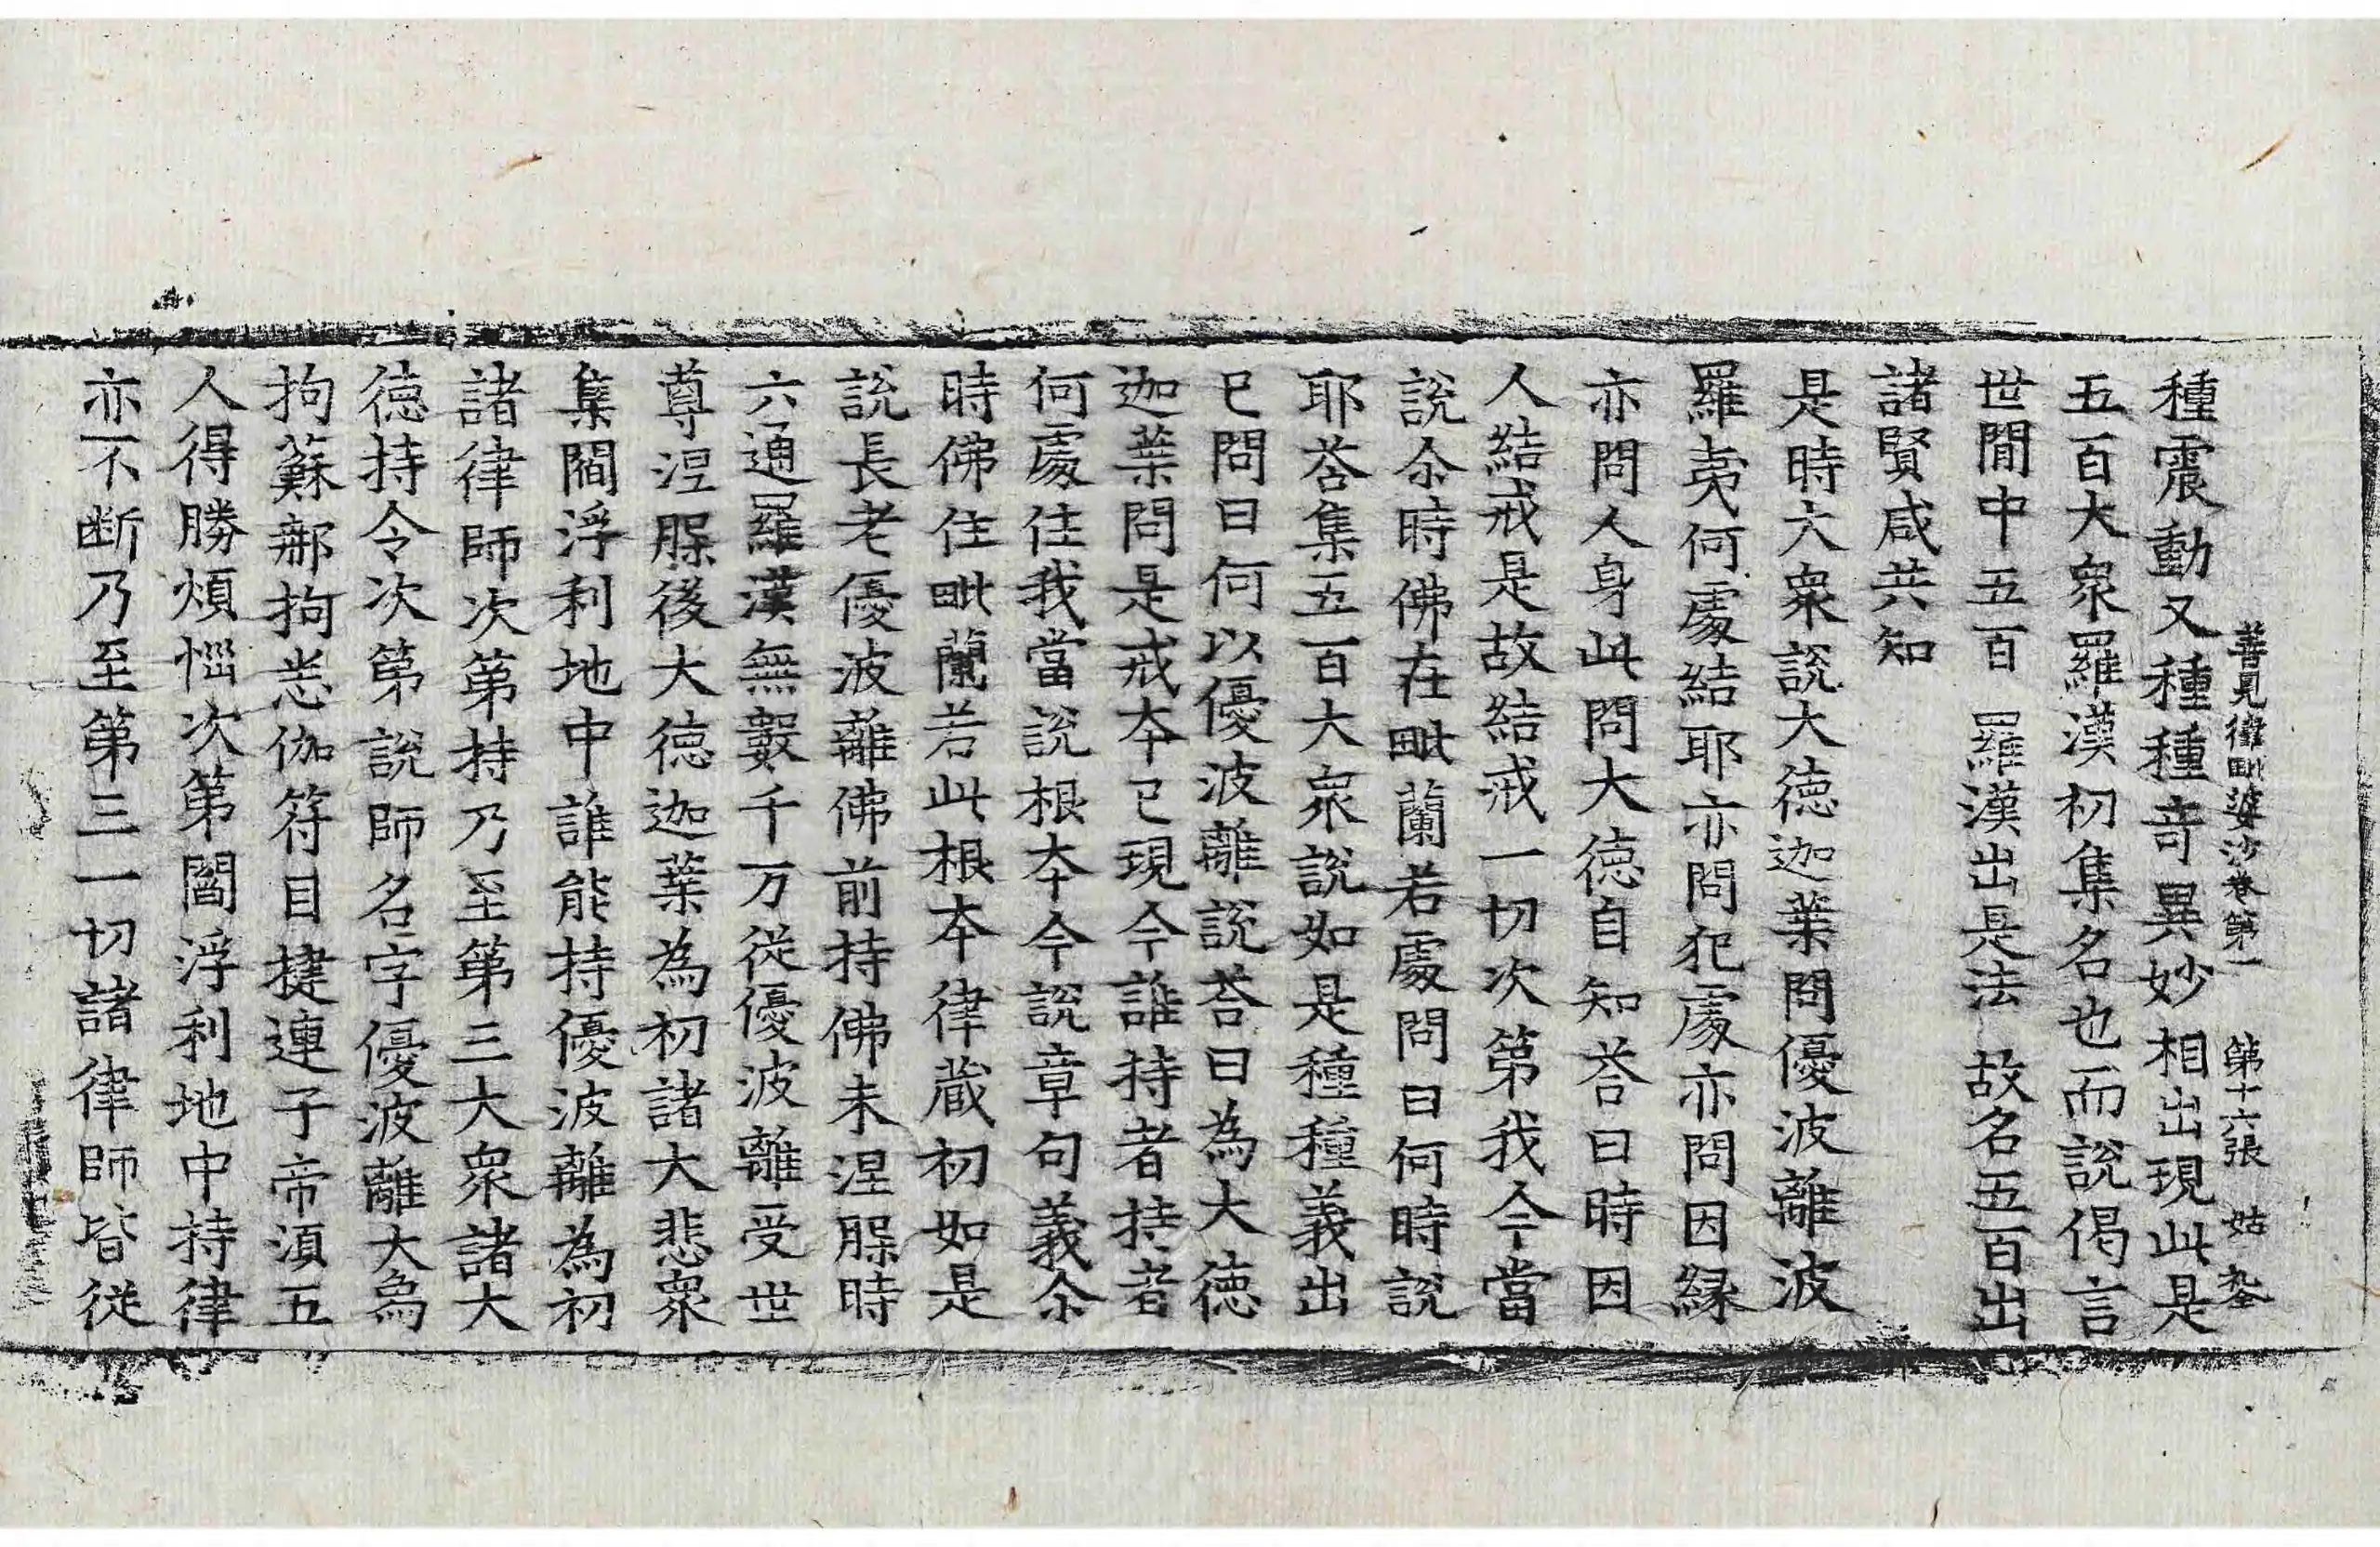 善見律毗婆沙卷第一　第十六張　姑
種震動又種種奇異妙相出現此是
五百大衆羅漢初集名也而說偈言
世間中五百　羅漢出是法　故名五百出
諸賢咸共知
是時大衆說大徳迦葉問優波離波
羅夷何處結耶亦問犯處亦問因縁
亦問人身此問大徳自知荅曰時因
人結戒是故結戒一切次第我今當
說尒時佛在毗蘭若處問曰何時說
耶荅集五百大衆說如是種種義出
已問曰何以優波離說荅曰為大徳
迦葉問是戒夲已現今誰持者持者
何處住我當說根夲今說章句義尒
時佛住毗蘭若此根夲律蔵初如是
說長老優波離佛前持佛未涅槃時
六通羅漢無數千万從優波離受世
尊涅槃後大徳迦葉為初諸大悲衆
集閻浮利地中誰能持優波離為初
諸律師次第持乃至第三大衆諸大
徳持令次第說師名字優波離大爲
拘蘇那拘悉伽符目揵連子帝湏五
人得勝煩惱次第閻浮利地中持律
亦不断乃至第三一切諸律師皆從